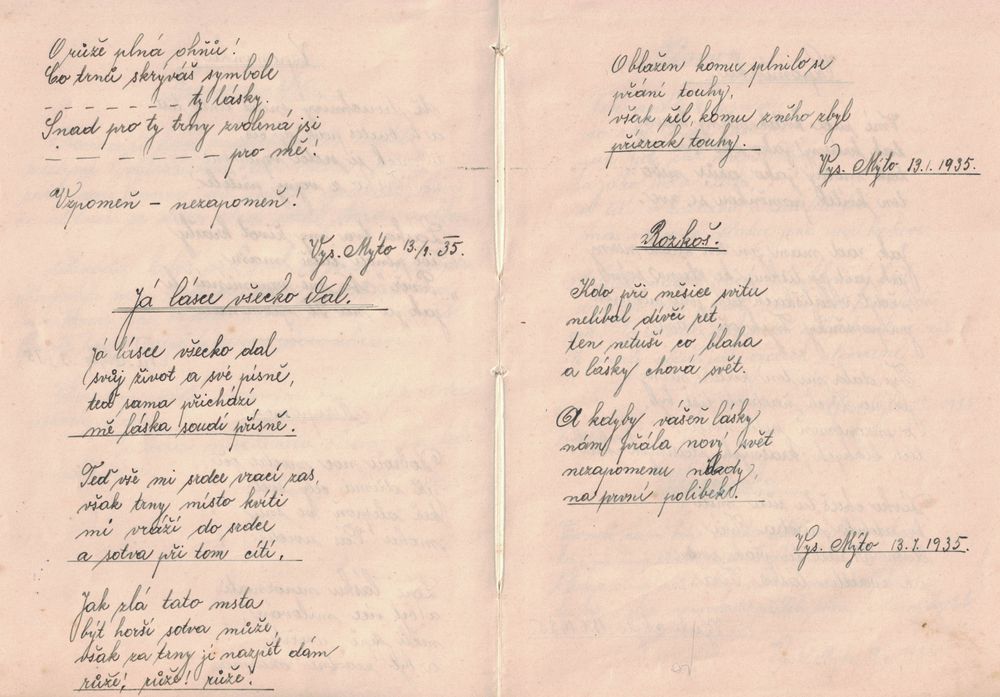 O růže plná ohňů!
Co trnů skrýváš symbole
_ _ _ _ _ _ _ ty lásky.
Snad pro ty trny zvolená jsi
_ _ _ _ _ _ _ pro mě!
Vzpomeň – nezapomeň!
Vys. Mýto 13./1. 35.
Já lásce všecko dal.
Já lásce všecko dal
svůj život a své písně,
teď sama přichází
mě láska soudí přísně.
Teď vše mi srdce vrací zas,
však trny místo kvítí
mi vráží do srdce
a sotva při tom cítí.
Jak zlá tato msta
být horší sotva může,
však za trny jí nazpět dám
růže! růže! růže!
Oblažen komu splnilo se
přání touhy,
však žel, komu z něho zbyl
přízrak touhy.
Vys. Mýto 13.1.1935.
Rozkoš.
Kdo při měsíce svitu
nelíbal dívčí ret,
ten netuší co blaha
a lásky chová svět.
A kdyby vášeň lásky
nám přála nový svět
nezapomenu nikdy,
na první polibek.
Vys. Mýto 13.1.1935.